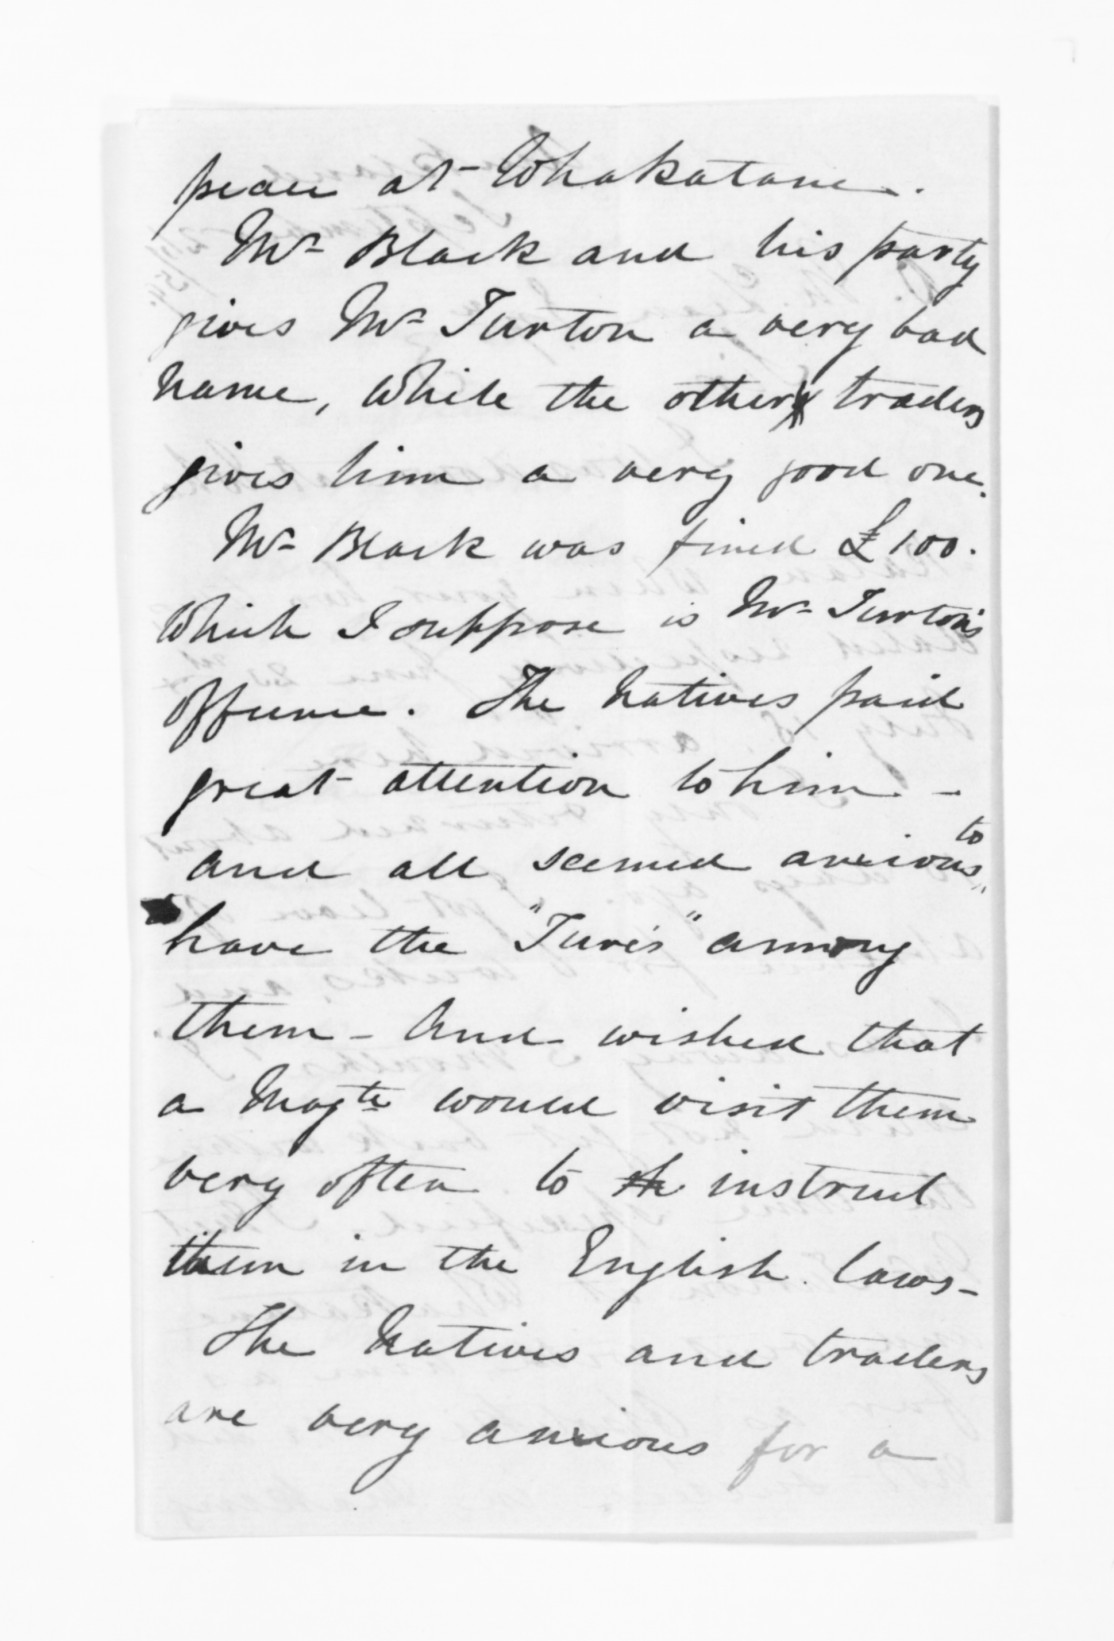 peace at Whakatane.
Mr Black and his party
gives Mr Turton a very bad
name, While the other traders
gives him a very good one.
Mr Black was fined £100.
Which I suppose is Mr Turton's
offence. The Natives paid
great attention to him -
and all seemed anxious to
have the "Ture's" among
them - And wished that
a Magte would visit them
very often to instruct
them in the English laws -
The Natives and traders
are very anxious for a